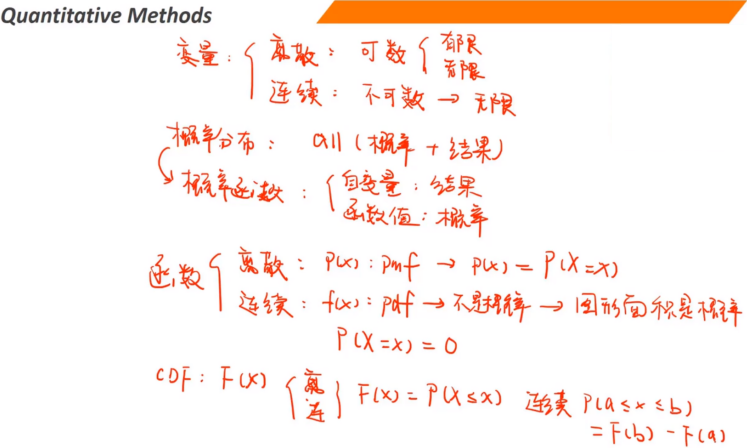 Quantitative Methods
变量：{ 离散：可数 { 有限
无限
连续：不可数 → 无限
概率分布：all（概率 + 结果）
概率函数：{ 自变量：结果
函数值：概率
函数 { 离散：P(x)：pmf → P(x) = P(X=x)
连续：f(x)：pdf → 不是概率 → 图形面积是概率
P(X=x) = 0
CDF：F(x) { 离
连 } F(x) = P(X≤x) 连续 P(a≤x≤b)
= F(b) - F(a)